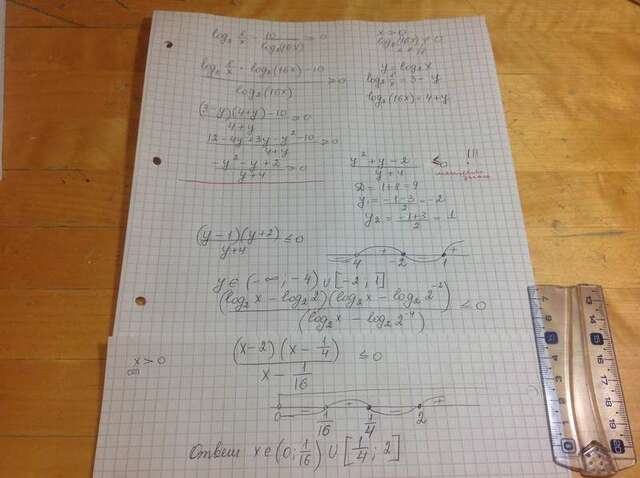 log₂ 8/x − 10/log₂(16x) ≥ 0
x > 0
log₂(16x) ≠ 0
(log₂ 8/x · log₂(16x) − 10)/log₂(16x) ≥ 0
y = log₂x
log₂ 8/x = 3 − y
log₂(16x) = 4 + y
((3 − y)(4 + y) − 10)/(4 + y) ≥ 0
(12 − 4y + 3y − y² − 10)/(4 + y) ≥ 0
(−y² − y + 2)/(y + 4) ≥ 0
(y² + y − 2)/(y + 4) ≤ 0 !!!
D = 1 + 8 = 9
y₁ = (−1 − 3)/2 = −2
y₂ = (−1 + 3)/2 = 1
((y − 1)(y + 2))/(y + 4) ≤ 0
− + − +
−4 −2 1
y ∈ (−∞; −4) ∪ [−2; 1]
((log₂x − log₂2)(log₂x − log₂2⁻²))/(log₂x − log₂2⁻⁴) ≤ 0
x > 0
((x − 2)(x − 1/4))/(x − 1/16) ≤ 0
− + − +
0 1/16 1/4 2
Ответ x ∈ (0; 1/16) ∪ [1/4; 2]
7 6 5 4 3 2 1 0
13 14 15 16 17 18 19 20